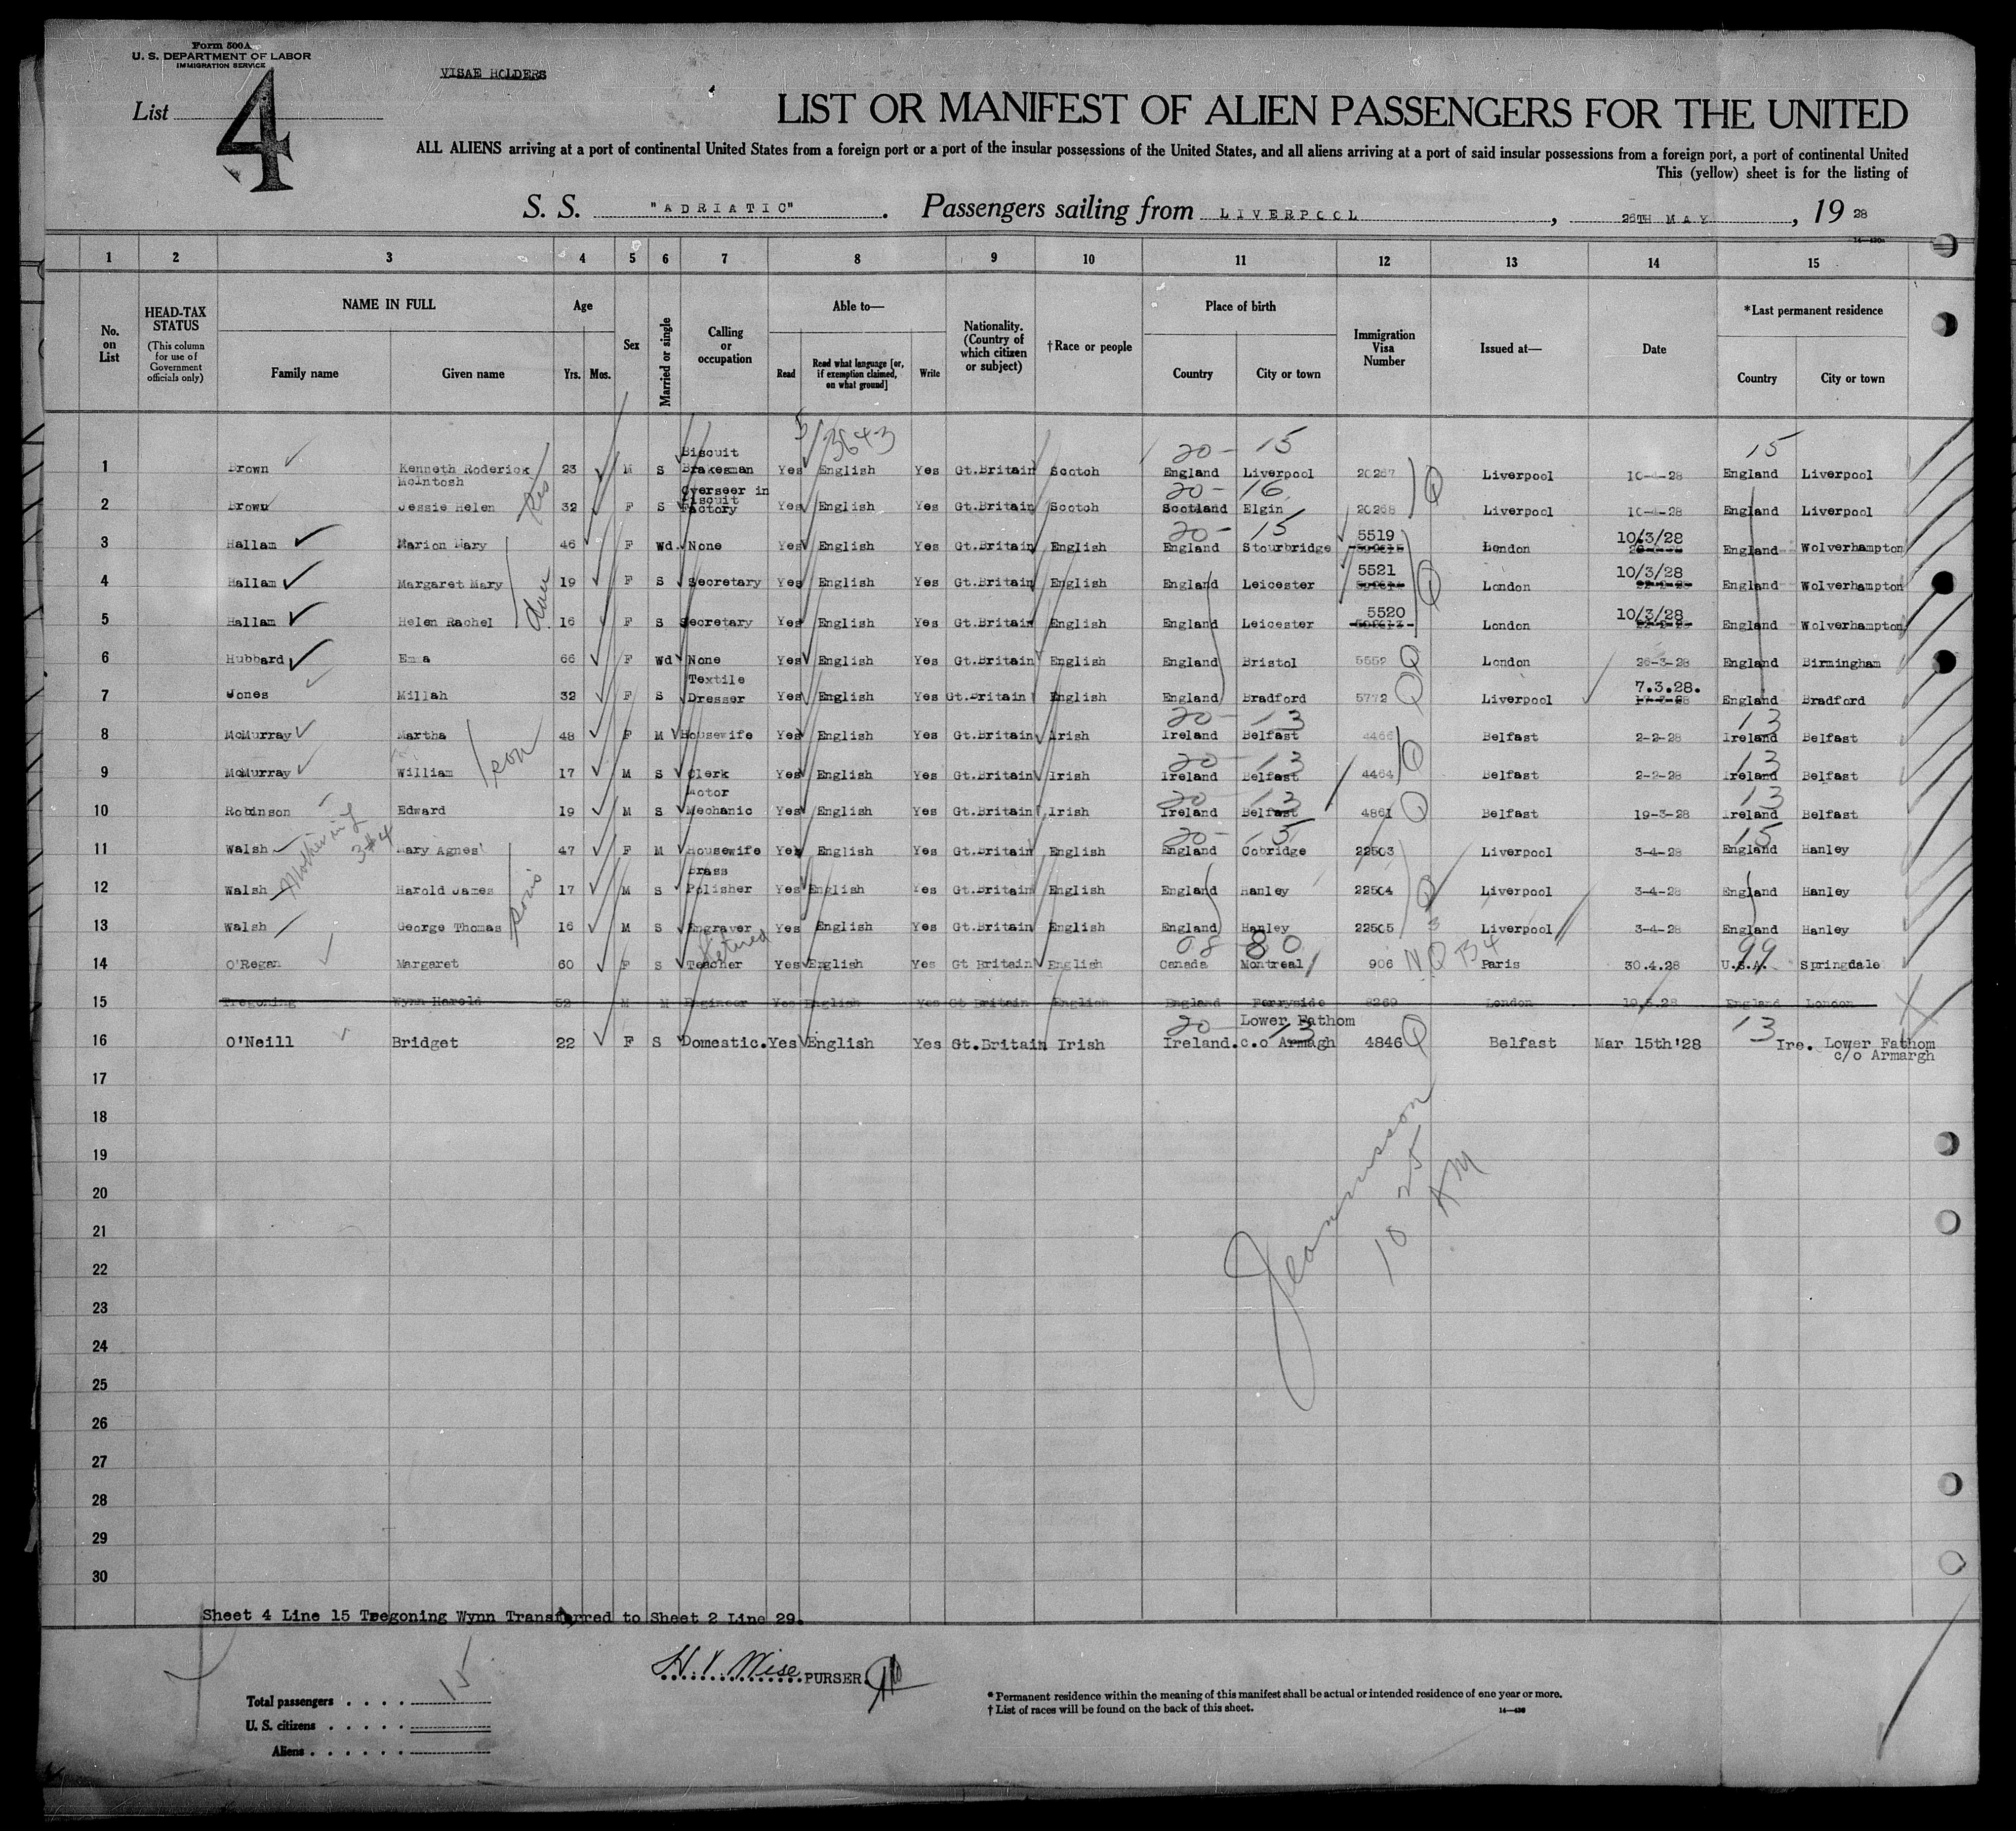 Form 500A
U. S. DEPARTMENT OF LABOR
IMMIGRATION SERVICE
VISAE HOLDERS
List 4
LIST OR MANIFEST OF ALIEN PASSENGERS FOR THE UNITED
ALL ALIENS arriving at a port of continental United States from a foreign port or a port of the insular possessions of the United States, and all aliens arriving at a port of said insular possessions from a foreign port, a port of continental United
This (yellow) sheet is for the listing of
S. S. "ADRIATIC". Passengers sailing from LIVERPOOL, 26TH MAY, 19 28
1 2 3 4 5 6 7 8 9 10 11 12 13 14 15
No. on List
HEAD-TAX STATUS
(This column for use of Government officials only)
NAME IN FULL
Family name Given name
Age
Yrs. Mos.
Sex
Married or single
Calling or occupation
Able to—
Read
Read what language [or, if exemption claimed, on what ground]
Write
Nationality. (Country of which citizen or subject)
†Race or people
Place of birth
Country City or town
Immigration Visa Number
Issued at—
Date
*Last permanent residence
Country City or town
3643
20- 15 15
1 Brown Kenneth Roderick McIntosh 23 M S Biscuit Brakesman Yes English Yes Gt.Britain Scotch England Liverpool 20267 Q Liverpool 10-4-28 England Liverpool
20- 16
2 Brown Jessie Helen 32 F S Overseer in Biscuit Factory Yes English Yes Gt.Britain Scotch Scotland Elgin 20268 Liverpool 10-4-28 England Liverpool
20- 15
3 Hallam Marion Mary 46 F Wd. None Yes English Yes Gt.Britain English England Stourbridge 5519 London 10/3/28 England Wolverhampton
4 Hallam Margaret Mary 19 F S Secretary Yes English Yes Gt.Britain English England Leicester 5521 Q London 10/3/28 England Wolverhampton
5 Hallam Helen Rachel 16 F S Secretary Yes English Yes Gt.Britain English England Leicester 5520 London 10/3/28 England Wolverhampton
6 Hubbard Emma 66 F Wd None Yes English Yes Gt.Britain English England Bristol 5552 Q London 26-3-28 England Birmingham
7 Jones Millah 32 F S Textile Dresser Yes English Yes Gt.Britain English England Bradford 5772 Q Liverpool 7.3.28. England Bradford
20- 13 13
8 McMurray Martha 48 F M Housewife Yes English Yes Gt.Britain Irish Ireland Belfast 4466 Q Belfast 2-2-28 Ireland Belfast
20- 13 13
9 McMurray William son 17 M S Clerk Yes English Yes Gt.Britain Irish Ireland Belfast 4464 Belfast 2-2-28 Ireland Belfast
20- 13 13
10 Robinson Edward 19 M S Motor Mechanic Yes English Yes Gt.Britain Irish Ireland Belfast 4861 Q Belfast 19-3-28 Ireland Belfast
20- 15 15
11 Walsh Mary Agnes 47 F M Housewife Yes English Yes Gt.Britain English England Cobridge 22503 Liverpool 3-4-28 England Hanley
12 Walsh Harold James sons 17 M S Brass Polisher Yes English Yes Gt.Britain English England Hanley 22504 Q Liverpool 3-4-28 England Hanley
13 Walsh George Thomas 16 M S Engraver Yes English Yes Gt.Britain English England Hanley 22505 Liverpool 3-4-28 England Hanley
08 80 99
14 O'Regan Margaret 60 F S Retired Teacher Yes English Yes Gt Britain English Canada Montreal 906 NQ B4 Paris 30.4.28 U.S.A. Springdale
15 Tregoning Wynn Harold 52 M M Engineer Yes English Yes Gt Britain English England Ferryside 8269 London 19.5.28 England London
20 13 13
16 O'Neill Bridget 22 F S Domestic. Yes English Yes Gt.Britain Irish Ireland. Lower Fathom c.o Armagh 4846 Q Belfast Mar 15th'28 Ire. Lower Fathom c/o Armargh
17
18
19
20
21
22
23
24
25
26
27
28
29
30
10 25 AM
Sheet 4 Line 15 Tregoning Wynn Transferred to Sheet 2 Line 29.
H. V. Wise PURSER.
Total passengers . . . . 15
U. S. citizens . . . . .
Aliens . . . . . .
* Permanent residence within the meaning of this manifest shall be actual or intended residence of one year or more.
† List of races will be found on the back of this sheet.
14—430